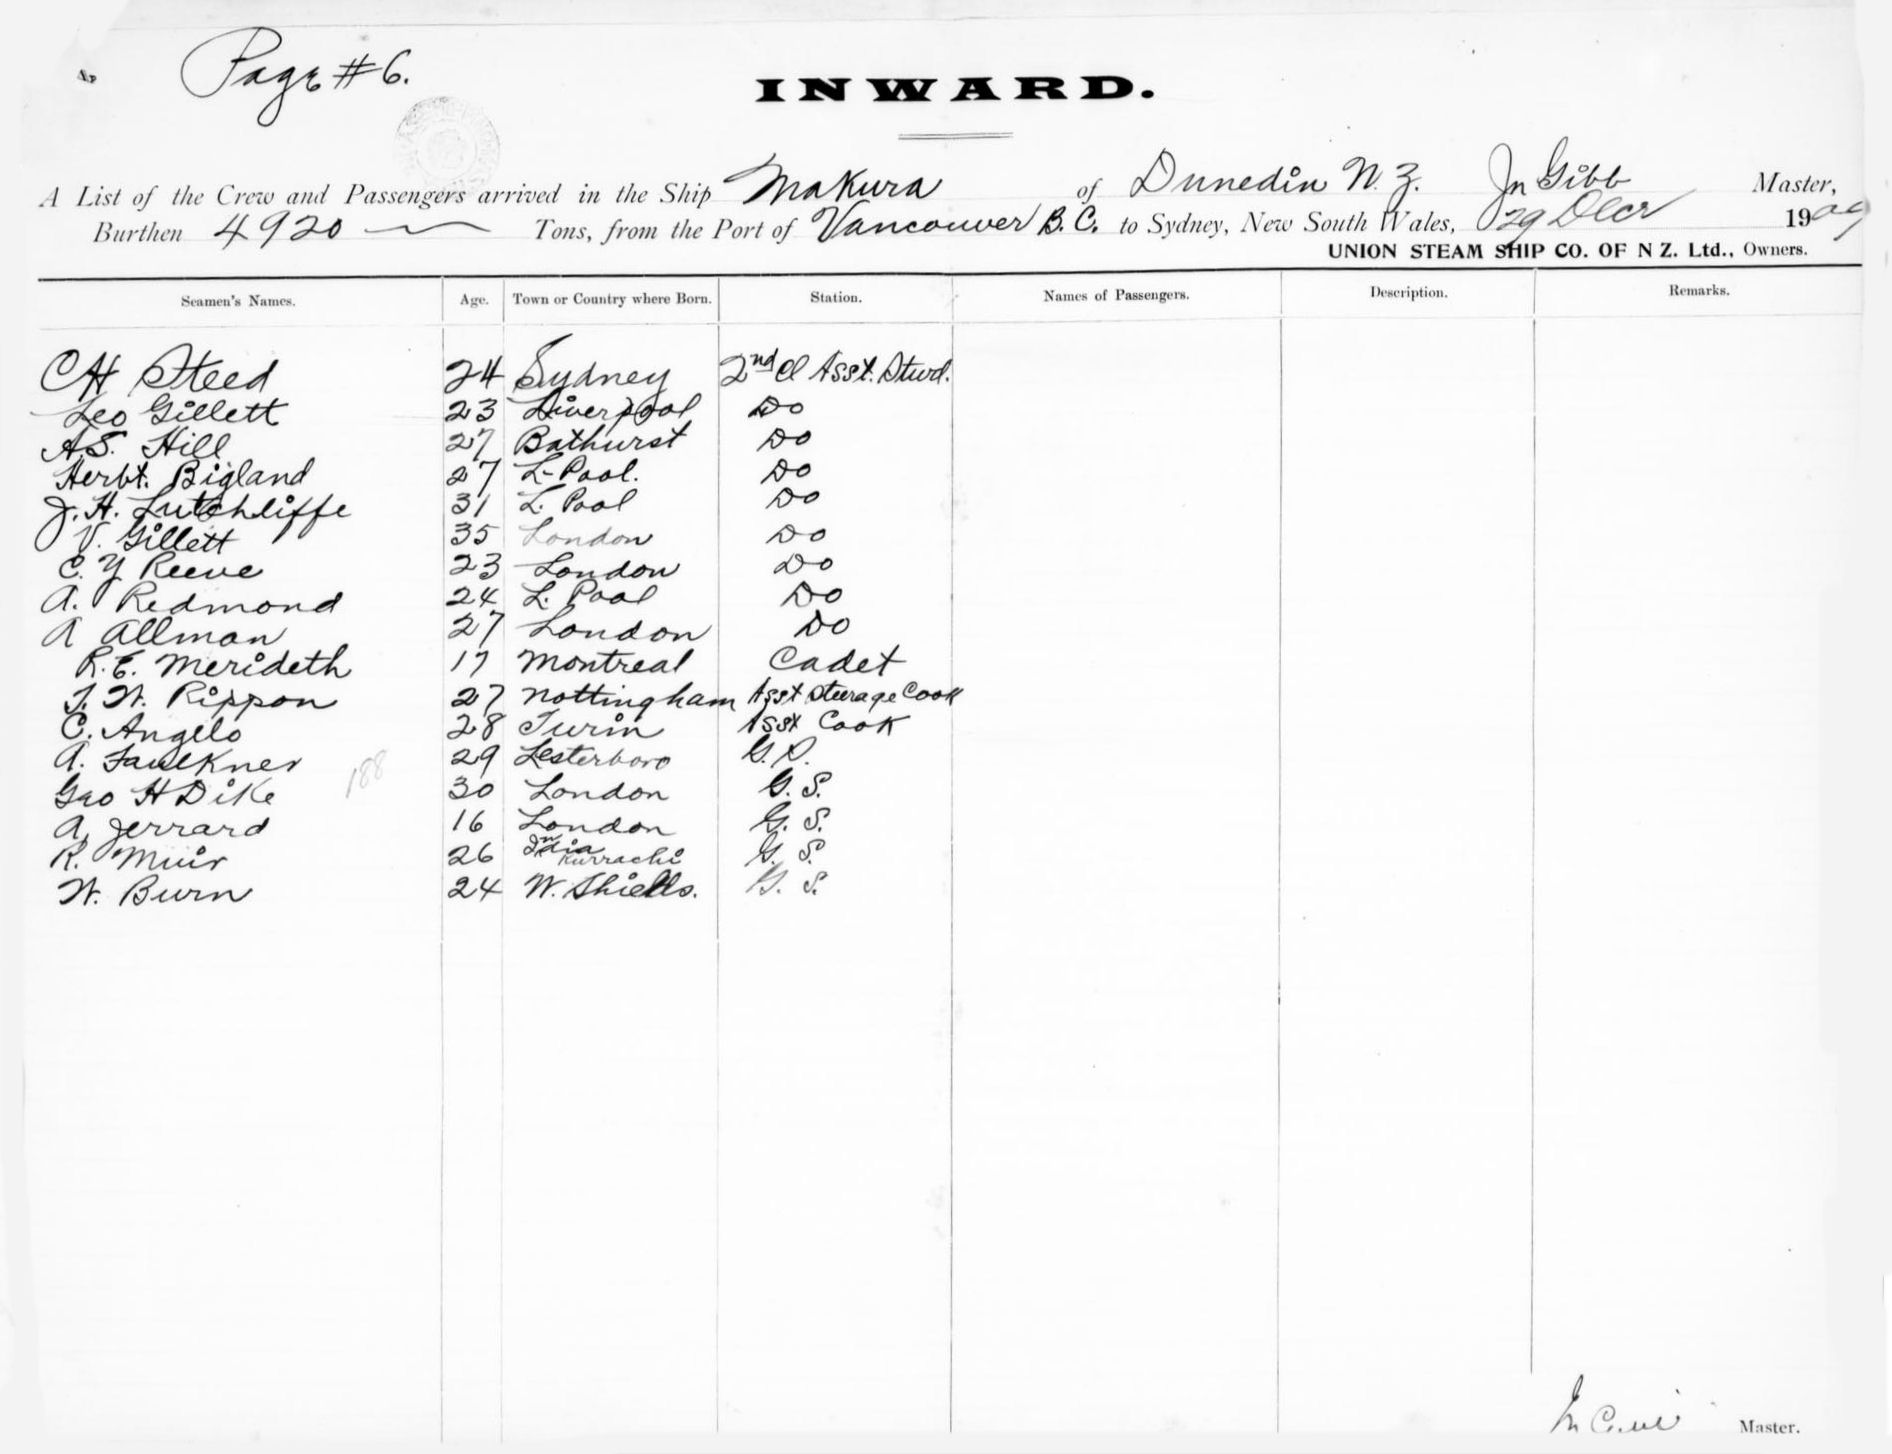 Page #6.
INWARD.
A List of the Crew and Passengers arrived in the Ship Makura of Dunedin N. Z. Jn Gibb Master,
Burthen 4920 Tons, from the Port of Vancouver B. C. to Sydney, New South Wales, 29 Decr 1909
UNION STEAM SHIP CO. OF N Z. Ltd., Owners.
Seamen's Names. Age. Town or Country where Born. Station. Names of Passengers. Description. Remarks.
C H Steed 24 Sydney 2nd Cl Asst. Stwd.
Leo Gillett 23 Liverpool Do
A S. Hill 27 Bathurst Do
Herbt. Bigland 27 L-Pool. Do
J. H. Lutchliffe 31 L. Pool Do
V. Gillett 35 London Do
C. Y Reeve 23 London Do
A. Redmond 24 L. Pool Do
A Allman 27 London Do
R. E. Merideth 17 Montreal Cadet
T. W. Rippon 27 Nottingham Asst Steerage Cook
C. Angelo 28 Turin Asst Cook
A. Faulkner 29 Lesterboro G. S.
188
Geo H Dike 30 London G. S.
A. Jerrard 16 London G. S.
R. Muir 26 India Kurrachi G. S.
W. Burn 24 W. Shields. G. S.
Master.